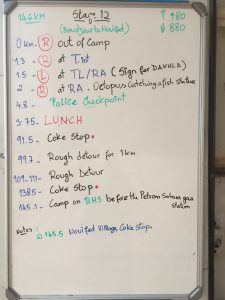 146km Stage 12 ↑ 980
(Boudjour to Nouifed) ↓ 880
0 km - R out of Camp
1.3 - S at Tint
1.5 - L at TL/RA (Sign for DAKHLA)
2 - R at RA - Octopus catching a fish statue
4.8 - Police Checkpoint
75 - LUNCH
91.5 - Coke Stop
99.7 - Rough detour for 1km
109-111 - Rough Detour
138.5 - Coke stop
145.1 - Camp on RHS before the Petrom Sahara gas station
Notes:
@ 145.5 Nouifed Village, Coke stop.